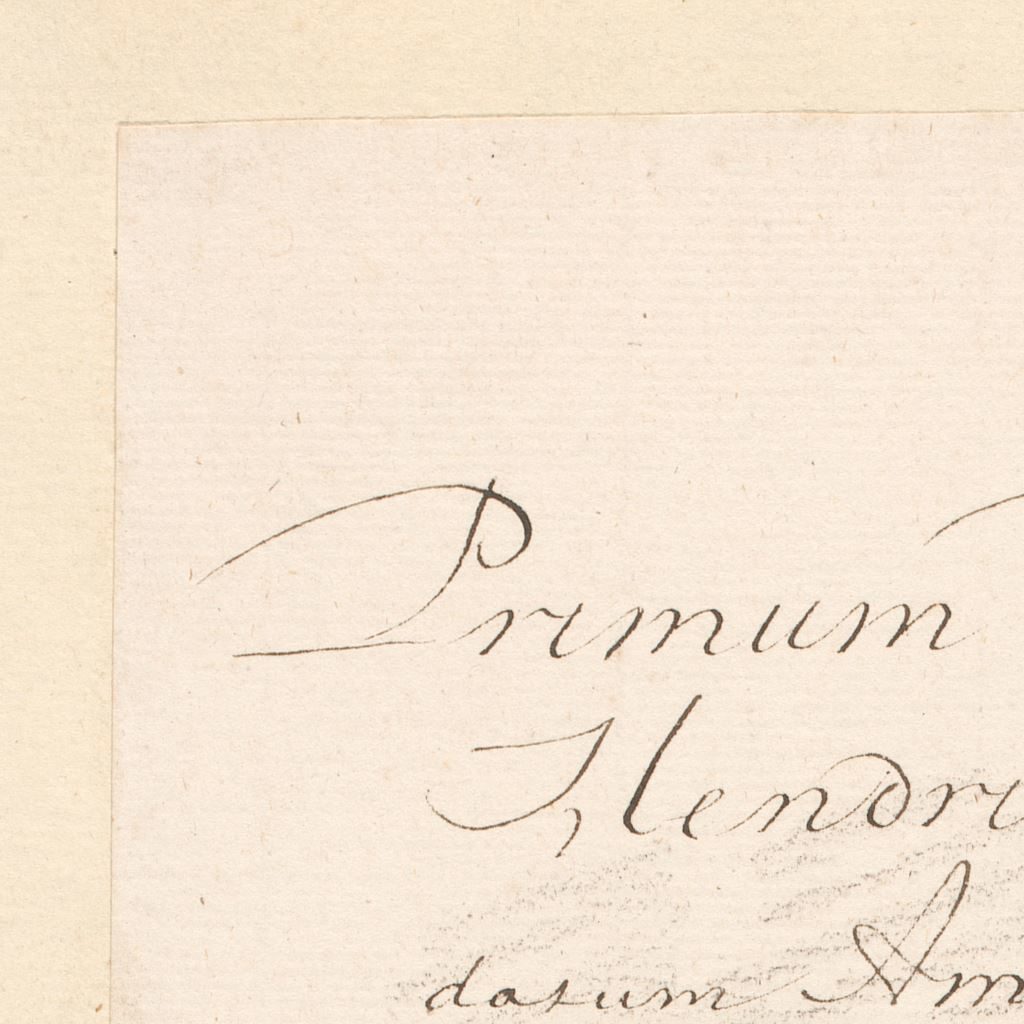 Primum
Hendri
datum Am